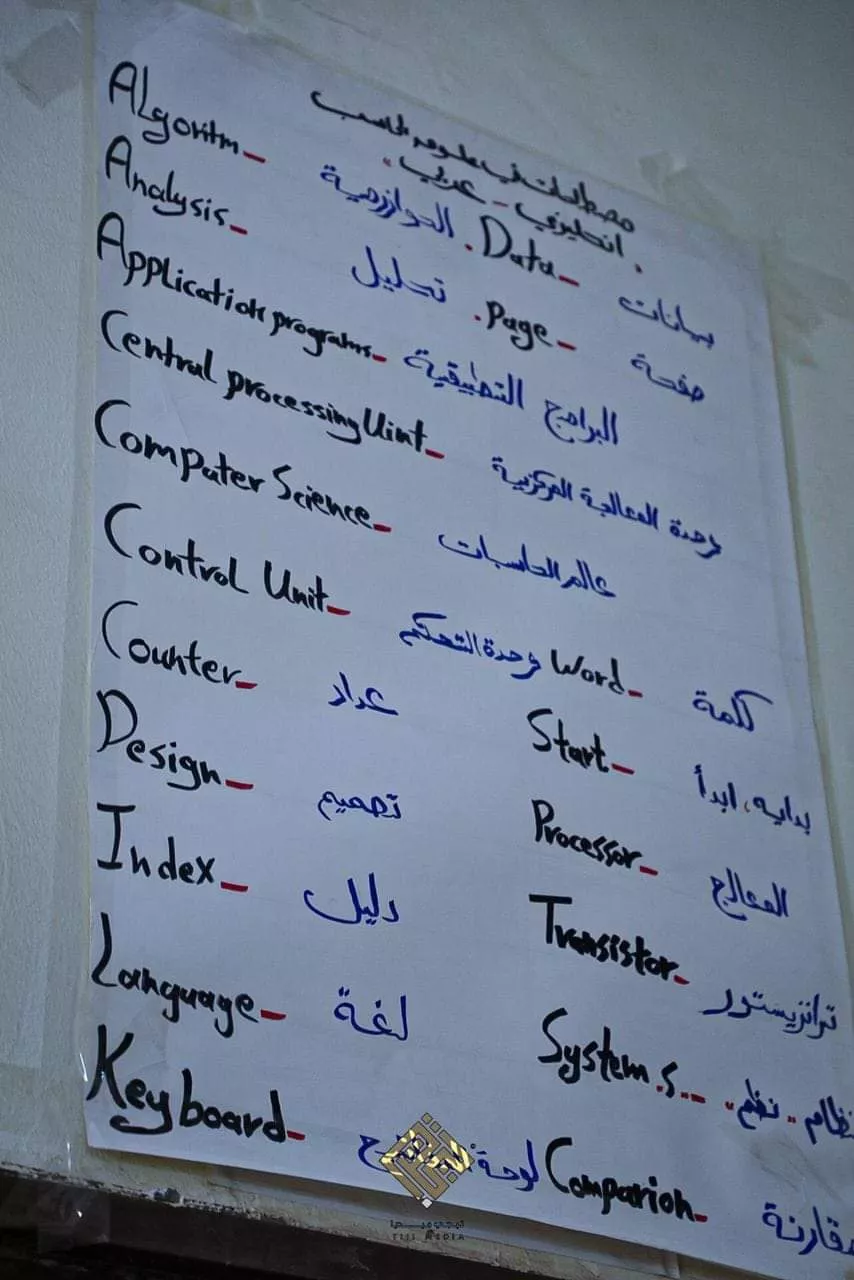 مصطلحات في علوم الحاسب
انجليزي - عربي.
Algoritm - الخوارزمية
Analysis - تحليل
Application programs - البرامج التطبيقية
Central processing Uint - وحدة المعالجة المركزية
Computer Science - عالم الحاسبات
Control Unit - وحدة التحكم
Counter - عداد
Design - تصميم
Index - دليل
Language - لغة
Keyboard - لوحة
Data - بيانات
Page - صفحة
Word - كلمة
Start - بدايه، ابدأ
Processor - المعالج
Transistor - ترانزيستور
System.s -- نظام .. نظم..
Comparion - مقارنة
تيجي ميديا
TIJI MEDIA